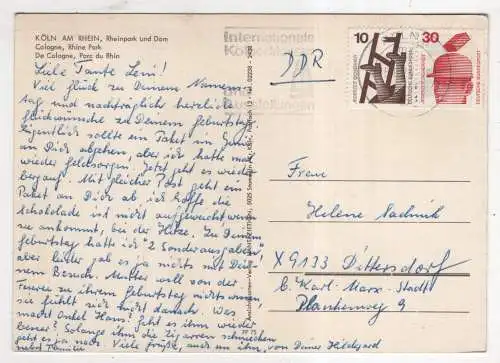 KÖLN AM RHEIN, Rheinpark und Dom
Cologne, Rhine Park
De Cologne, Parc du Rhin
Liebe Tante Leni!
Viel Glück zu Deinem Namens-
tag und nachträglich herzliche
Glückwünsche zu Deinem Geburtstag.
Eigentlich sollte ein Paket im Juni
an Dich abgehen, aber ich hatte mal
wieder Geldsorgen. Jetzt geht es wieder
bergauf. Mit gleicher Post geht ein
Paket an Dich ab. Ich hoffe die
Schokolade ist nicht aufgeweicht wenn
sie ankommt, bei der Hitze. Zu Deinem
Geburtstag hatte ich "2 Sonderausgaben",
aber leider gab es ja nichts mit Dei-
nem Besuch. Mutter will von der
Feuers zu ihrem Geburtstag nichts wissen,
sie fühlt sich nicht danach. Was
macht Onkel Hans? Geht es ihm wieder
besser? Solange ihm die Zigarren schmecken
geht es ja noch. Viele Grüße, auch an ihn, von Deiner Hildegard
nebst Familie
Internationale
Ausstellungen
DDR
10
30
DEUTSCHE BUNDESPOST
DEUTSCHE BUNDESPOST
Frau
Helene Nadnik
X 9133 Dittersdorf
b. Karl-Marx-Stadt
Plankenweg 9